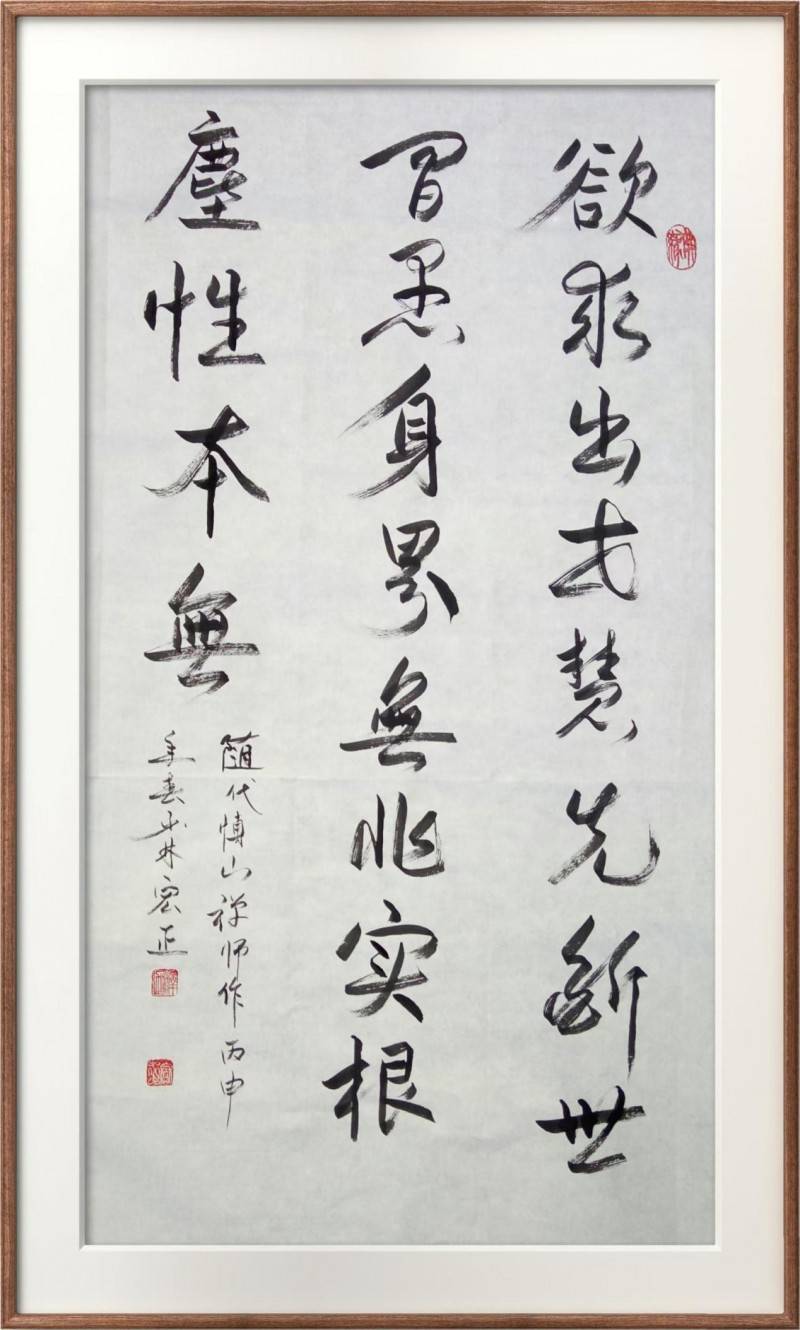 欲求出世慧先斷世
間愚身累無非实根
塵性本無
随代愽山禅师作丙申
年春林宏正